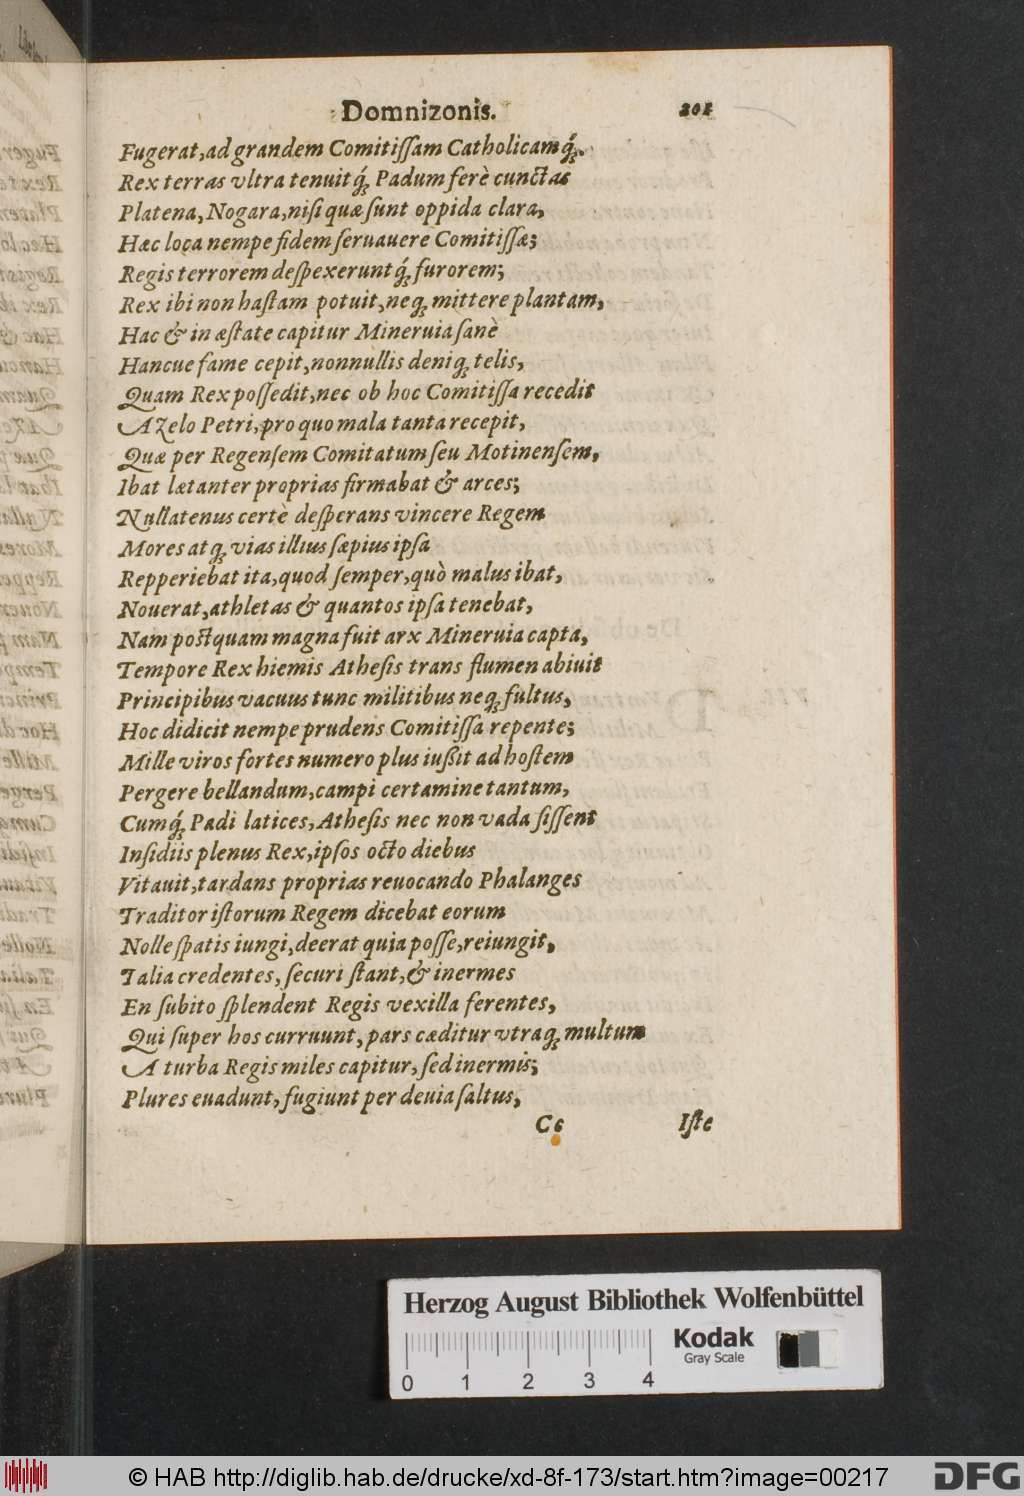 Domnizonis. 201
Fugerat, ad grandem Comitiſſam Catholicamq́;.
Rex terras vltra tenuitq́; Padum ferè cunctas
Platena, Nogara, niſi quæ ſunt oppida clara,
Hæc loca nempe fidem ſeruauere Comitiſſæ;
Regis terrorem deſpexeruntq́; furorem;
Rex ibi non haſtam potuit, neq; mittere plantam,
Hac & in æſtate capitur Mineruia ſanè
Hancue fame cepit, nonnullis deniq; telis,
Quam Rex poſſedit, nec ob hoc Comitiſſa recedit
Azelo Petri, pro quo mala tanta recepit,
Quæ per Regenſem Comitatum ſeu Motinenſem,
Ibat lætanter proprias firmabat & arces;
Nullatenus certè deſperans vincere Regem
Mores atq; vias illius ſæpius ipſa
Repperiebat ita, quod ſemper, quò malus ibat,
Nouerat, athletas & quantos ipſa tenebat,
Nam poſtquam magna fuit arx Mineruia capta,
Tempore Rex hiemis Atheſis trans flumen abiuit
Principibus vacuus tunc militibus neq; fultus,
Hoc didicit nempe prudens Comitiſſa repente;
Mille viros fortes numero plus iußit ad hoſtem
Pergere bellandum, campi certamine tantum,
Cumq́; Padi latices, Atheſis nec non vada ſiſſent
Inſidiis plenus Rex, ipſos octo diebus
Vitauit, tardans proprias reuocando Phalanges
Traditor iſtorum Regem dicebat eorum
Nolle ſpatis iungi, deerat quia poſſe, reiungit,
Talia credentes, ſecuri ſtant, & inermes
En ſubito ſplendent Regis vexilla ferentes,
Qui ſuper hos curruunt, pars cæditur vtraq; multum
A turba Regis miles capitur, ſed inermis;
Plures euadunt, fugiunt per deuia ſaltus,
Cc Iſte
Herzog August Bibliothek Wolfenbüttel
Kodak
Gray Scale
0 1 2 3 4
© HAB http://diglib.hab.de/drucke/xd-8f-173/start.htm?image=00217
DFG